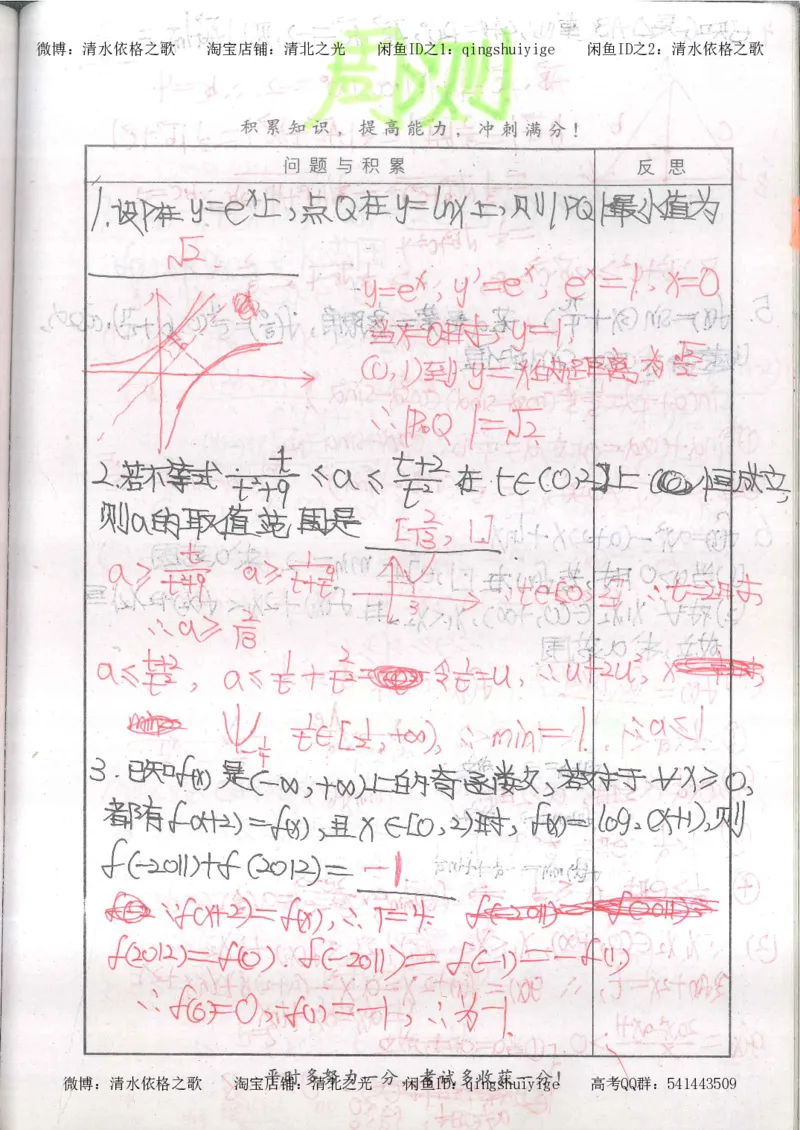 微博：清水依格之歌 淘宝店铺：清北之光 闲鱼ID之1：qingshuiyige 闲鱼ID之2：清水依格之歌
周测
积累知识，提高能力，冲刺满分！
问题与积累 反思
1.设P在y=eˣ上，点Q在y=lnx上，则|PQ|最小值为
√2
y=eˣ, y'=eˣ, eˣ=1, x=0
当x=0时，y=1,
(0,1)到y=x的距离为√2/2
∴|PQ|=√2
2.若不等式 t/(t²+9) ≤a≤ (t+2)/t² 在t∈(0,2]上恒成立,
则a的取值范围是 [2/13, 1]
a≥ t/(t²+9) a≥ 1/(t+9/t) 3 ∴t=2时,
∴a≥ 2/13
a≤ (t+2)/t², a≤ 1/t + 2/t² 令1/t=u, ∴u+2u²,
-1/4 1/t∈[1/2,+∞), ∴min=1. ∴a≤1
3.已知f(x)是(-∞,+∞)上的奇函数，若对于∀x≥0,
都有f(x+2)=f(x),且x∈[0,2)时, f(x)=log₂(x+1),则
f(-2011)+f(2012)= -1
∵f(x+2)=f(x), ∴T=4.
f(2012)=f(0). f(-2011)=f(-1)=-f(1)
∴f(0)=0, -f(1)=-1, ∴为-1.
平时多努力一分，考试多收获一分！
微博：清水依格之歌 淘宝店铺：清北之光 闲鱼ID：qingshuiyige 高考QQ群：541443509